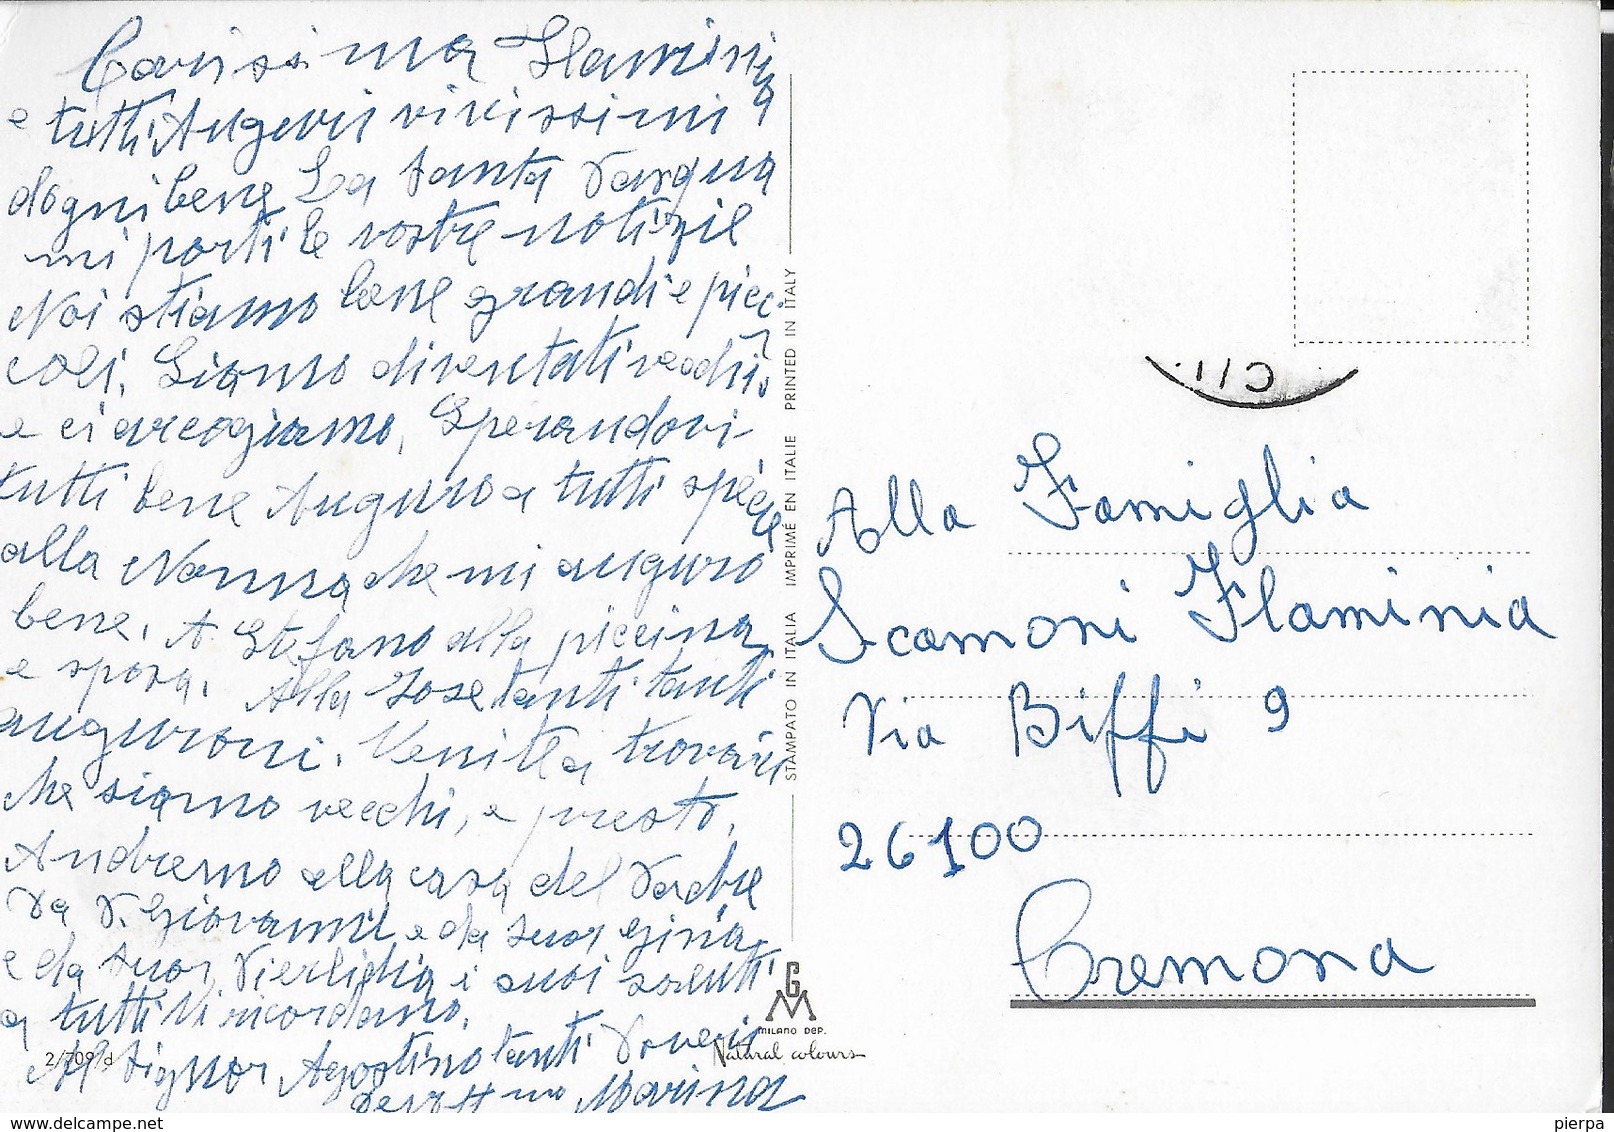 Carissima Flaminia
e tutti Auguri vivissimi
d'ogni bene La Santa Pasqua
mi porti le vostre notizie
Noi stiamo bene grandi e picc-
coli. Siamo diventati vecchi,
e ci arcogiamo. Sperandovi
tutti bene Auguro a tutti specie
alla Nonna che mi auguro
bene. A Stefano alla piccina
e sposa. Alla Rose tanti tanti
auguroni. Venite a trovare
che siamo vecchi, e presto,
Andremo alla casa del Padre
Da P. Giovanni e da Suor Gina
e da Suor Pierlidia i suoi saluti
a tutti Vi ricordiamo.
Al Signor Agostino tanti
Marina
STAMPATO IN ITALIA IMPRIMÉ EN ITALIE PRINTED IN ITALY
GM
MILANO DEP.
Natural colours
2/709 d
Alla Famiglia
Scamoni Flaminia
Via Biffi 9
26100
Cremona
pierpa
delcampe.net